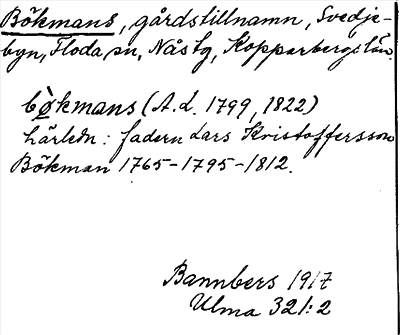 Bökmans, gårdstillnamn, Svedje-
byn, Floda sn, Nås tg, Kopparbergs län.
bòkmans (A.L. 1799, 1822)
härledn: fadern Lars Kristoffersson
Bökman 1765-1795-1812.
Bannbers 1917
Ulma 321:2